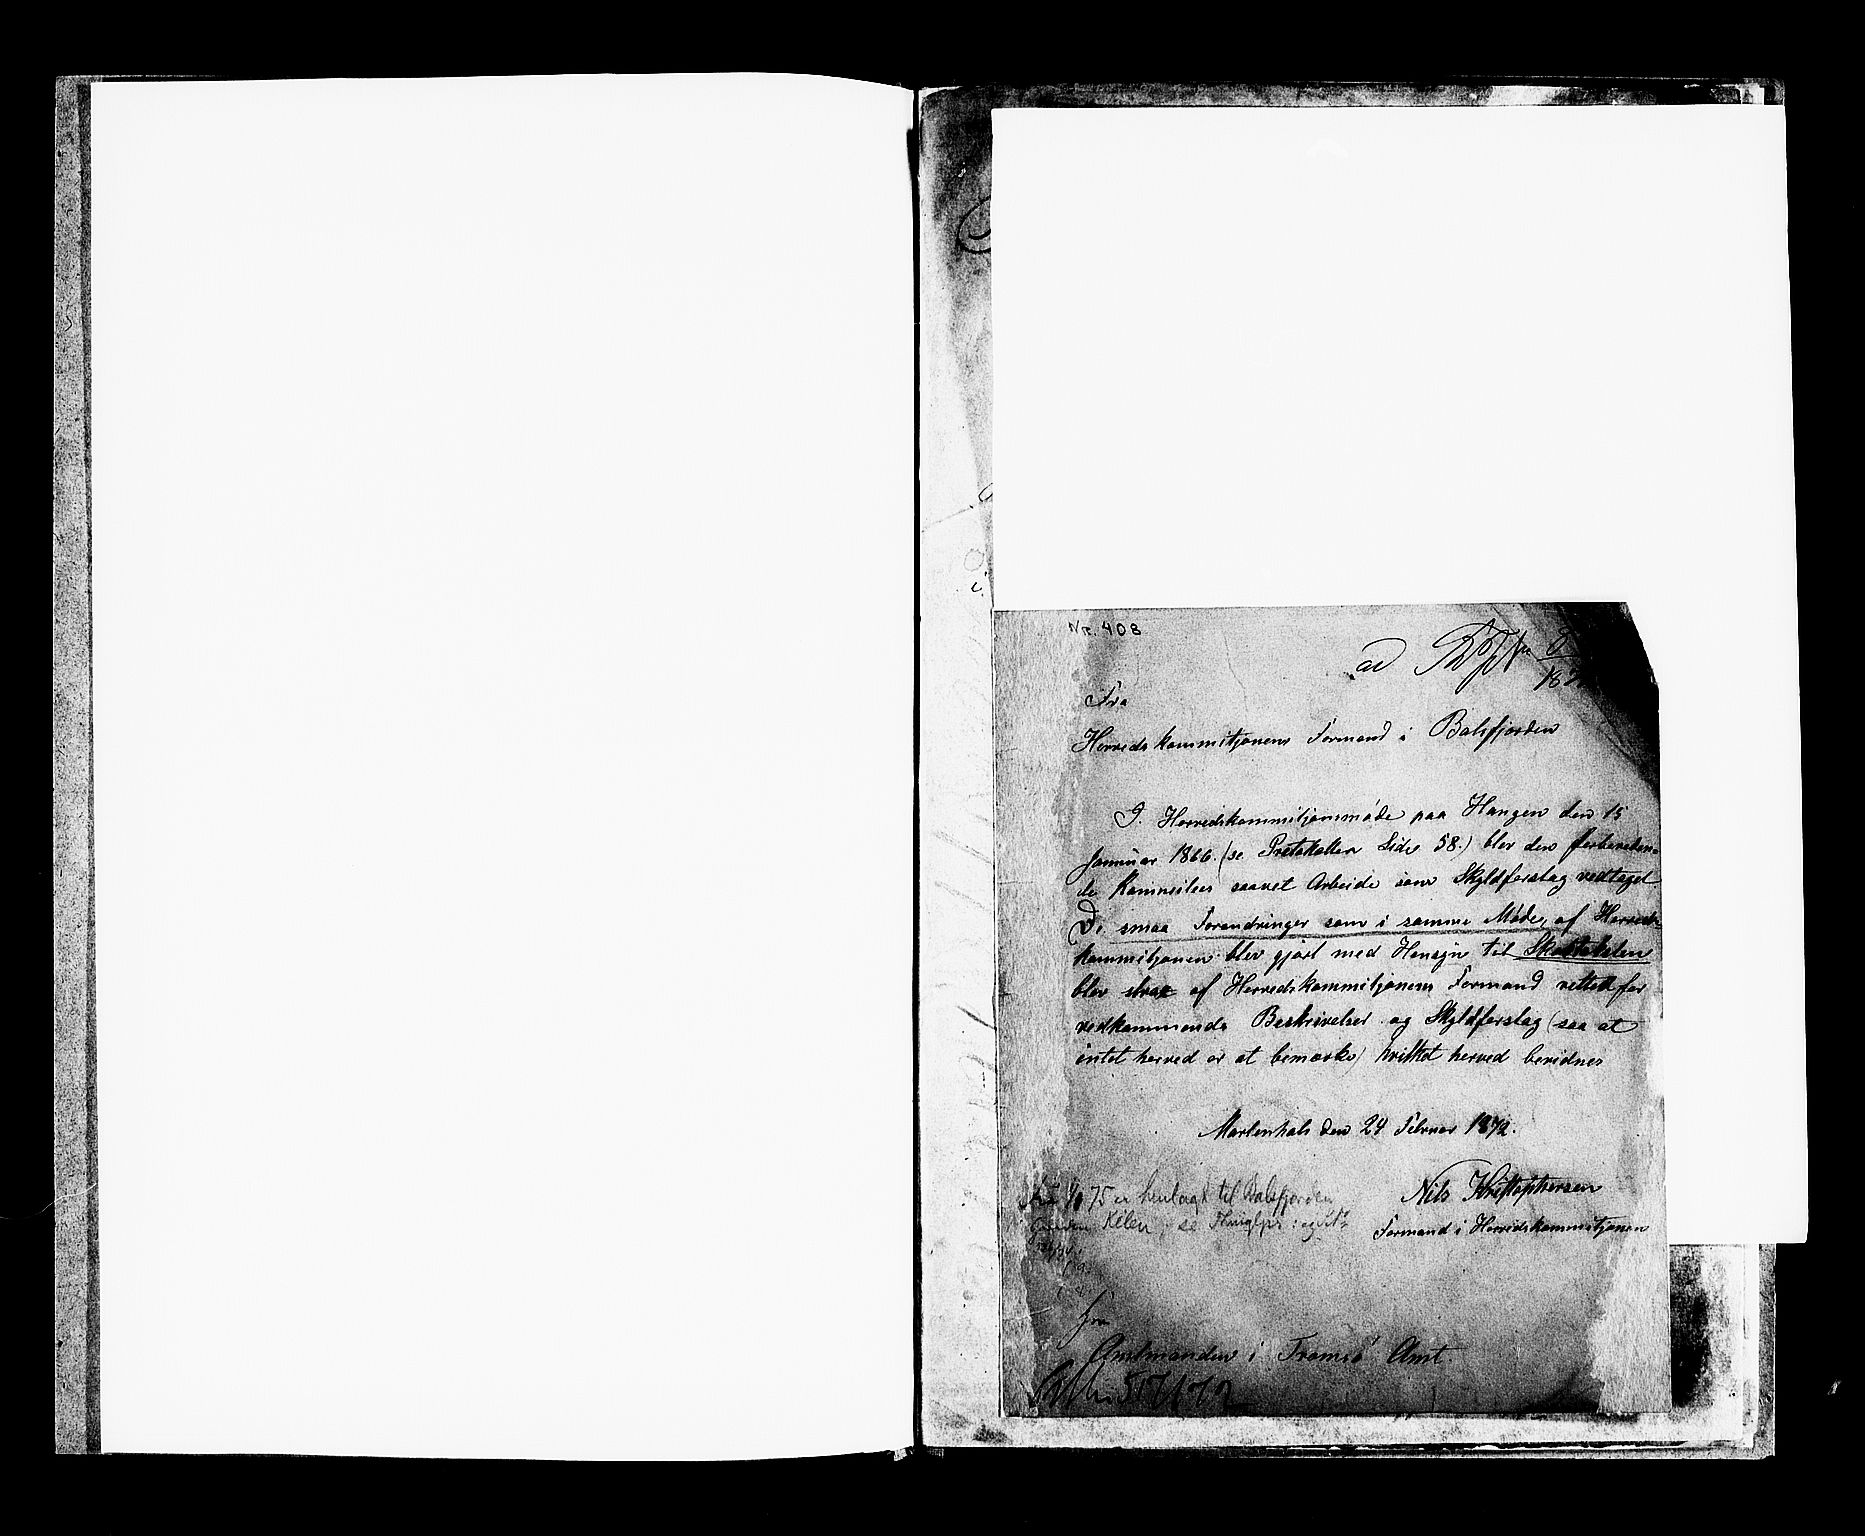 Nr. 408
ad
Fra
Herredskommitjonens Formand i Balsfjorden
I. Herredskommitjonsmøde paa Hangen den 15
Januar 1866. (se Protokollen Side 58.) blev den forbereden-
de Kommites saavet Arbeide som Skyldforslag vedtaget
De smaa Forandringer som i samme Møde, af Herreds-
kommitjonen blev gjort med Hensyn til
blev strax af Herredskommitjonens Formand rettet for
vedkommende Beskrivelser og Skyldforslag (saa at
intet herved er at bemærke) hvilket herved bevidnes
Martenhals den 24 Februar 1872.
Nils Kristophersen
Formand i Herredskommitjonen
75 er henlagt til Balsfjorden
Kilen, se
Fra
Amtmanden i Tromsø Amt.